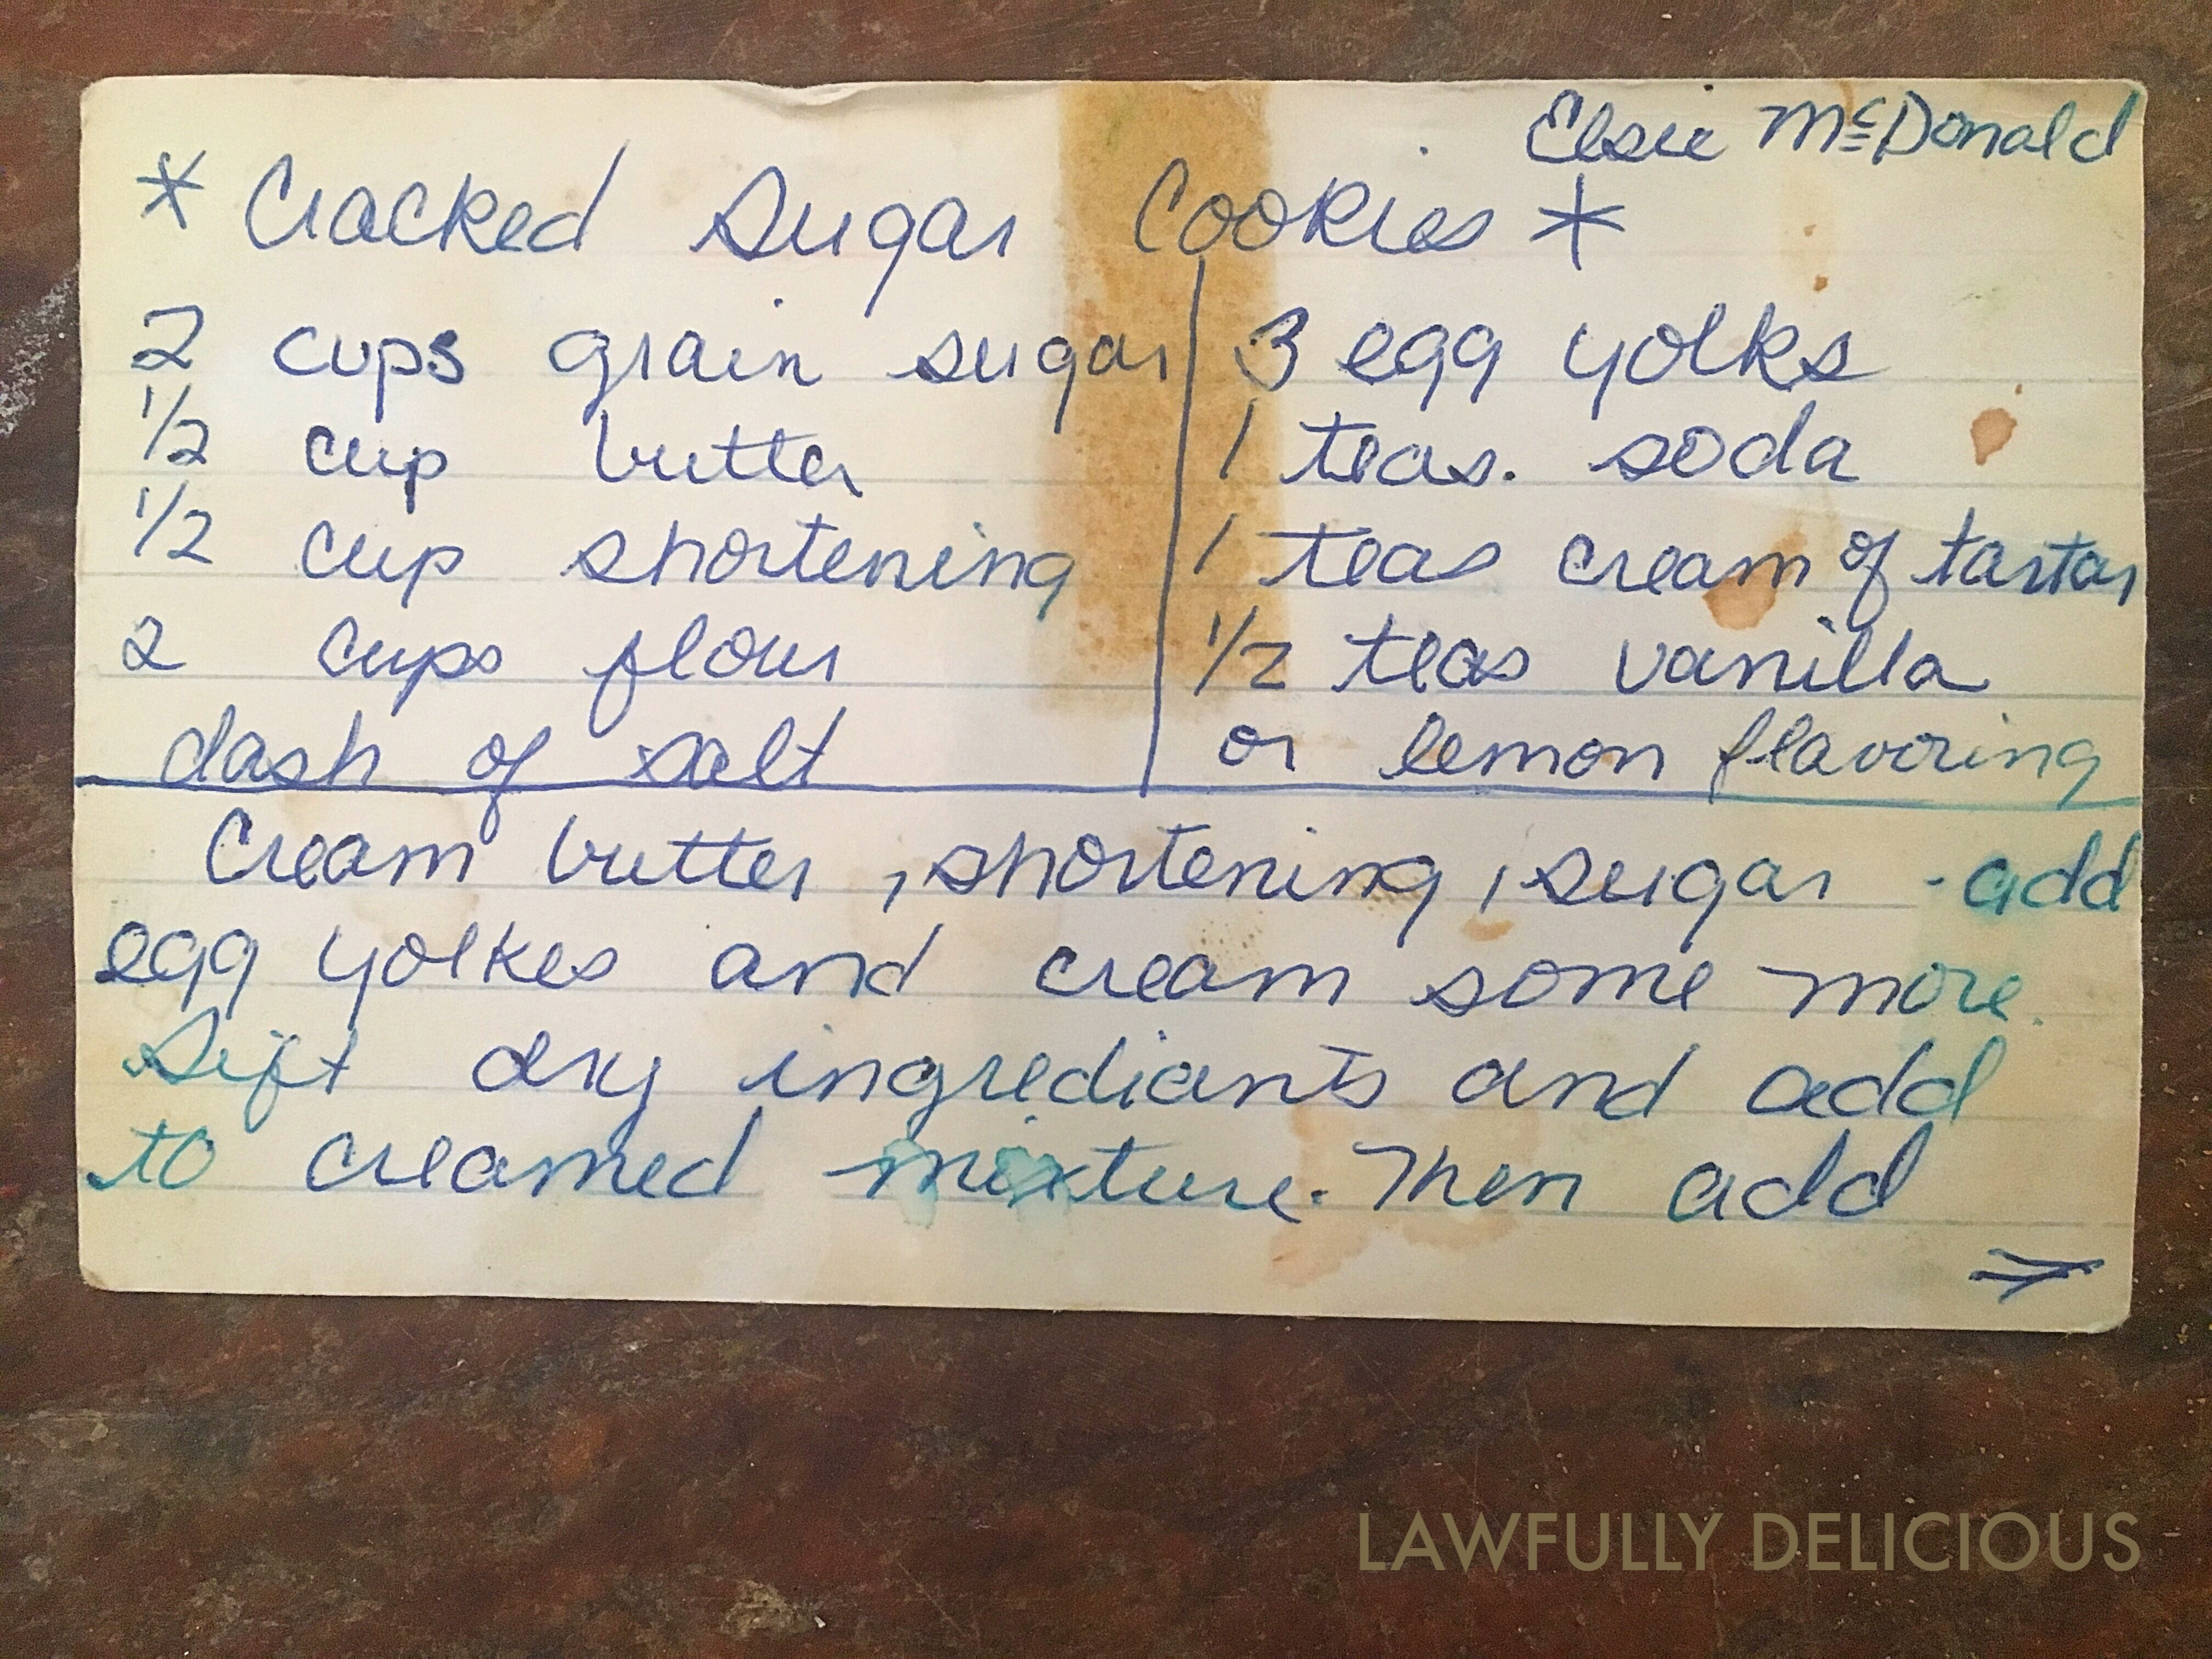 Elsie McDonald
* Cracked Sugar Cookies *
2 cups grain sugar
1/2 cup butter
1/2 cup shortening
2 cups flour
dash of salt
3 egg yolks
1 teas. soda
1 teas cream of tartar
1/2 teas vanilla
or lemon flavoring
Cream butter, shortening, sugar - add
egg yolkes and cream some more.
Sift dry ingrediants and add
to creamed mixture. Then add
LAWFULLY DELICIOUS